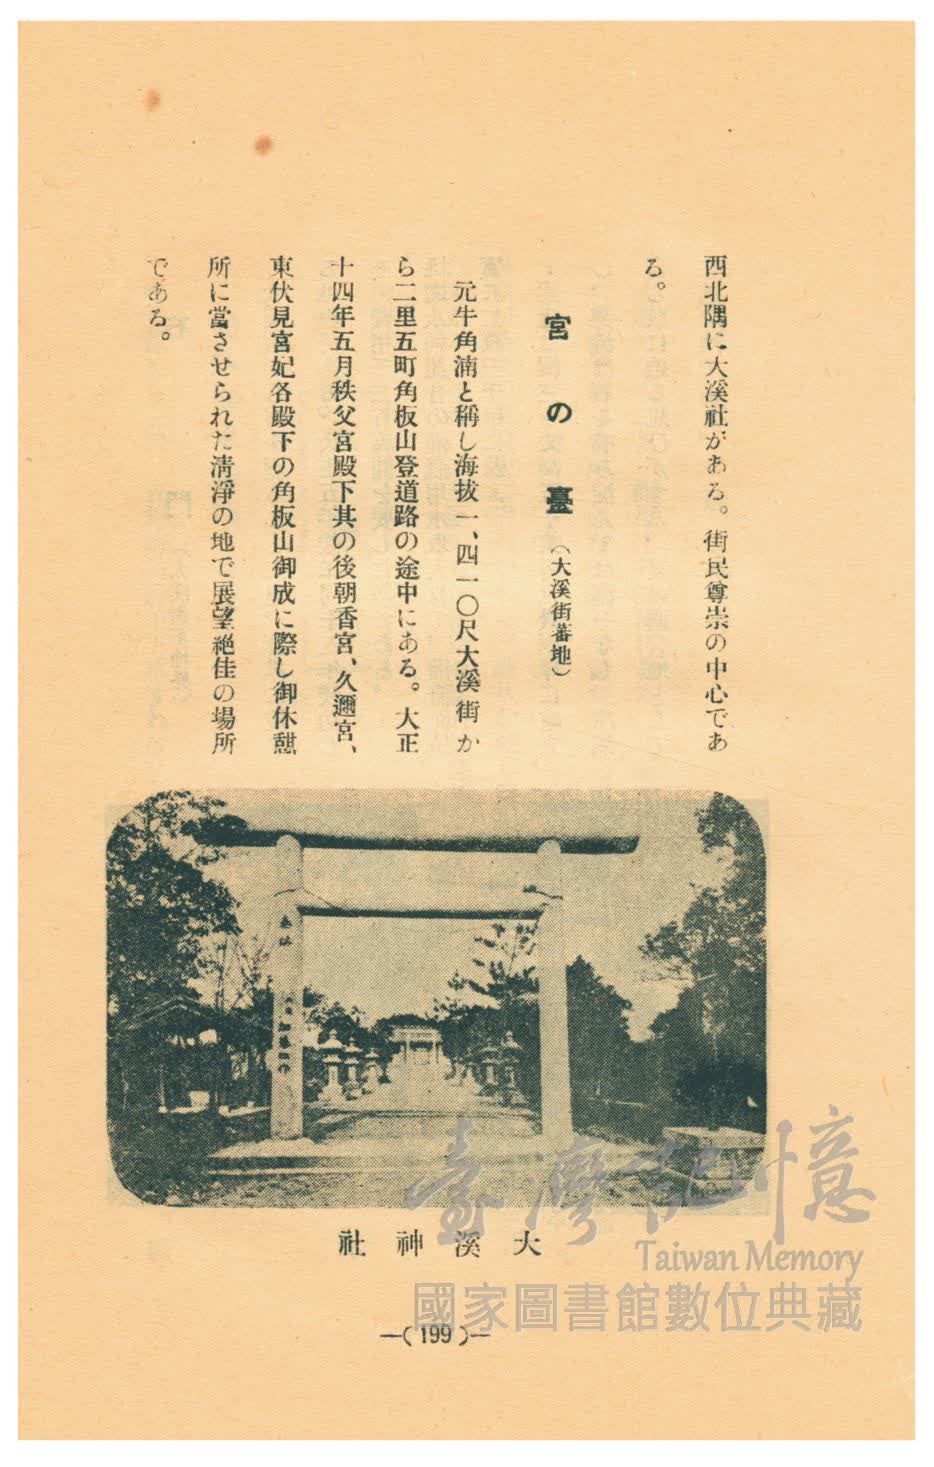 西北隅に大溪社がある。街民尊崇の中心であ
る。
宮の臺（大溪街蕃地）
元牛角湳と稱し海拔一、四一〇尺大溪街か
ら二里五町角板山登道路の途中にある。大正
十四年五月秩父宮殿下其の後朝香宮、久邇宮、
東伏見宮妃各殿下の角板山御成に際し御休憩
所に當させられた淸淨の地で展望絶佳の場所
である。
社神溪大
—( 199 )—
臺灣記憶
Taiwan Memory
國家圖書館數位典藏